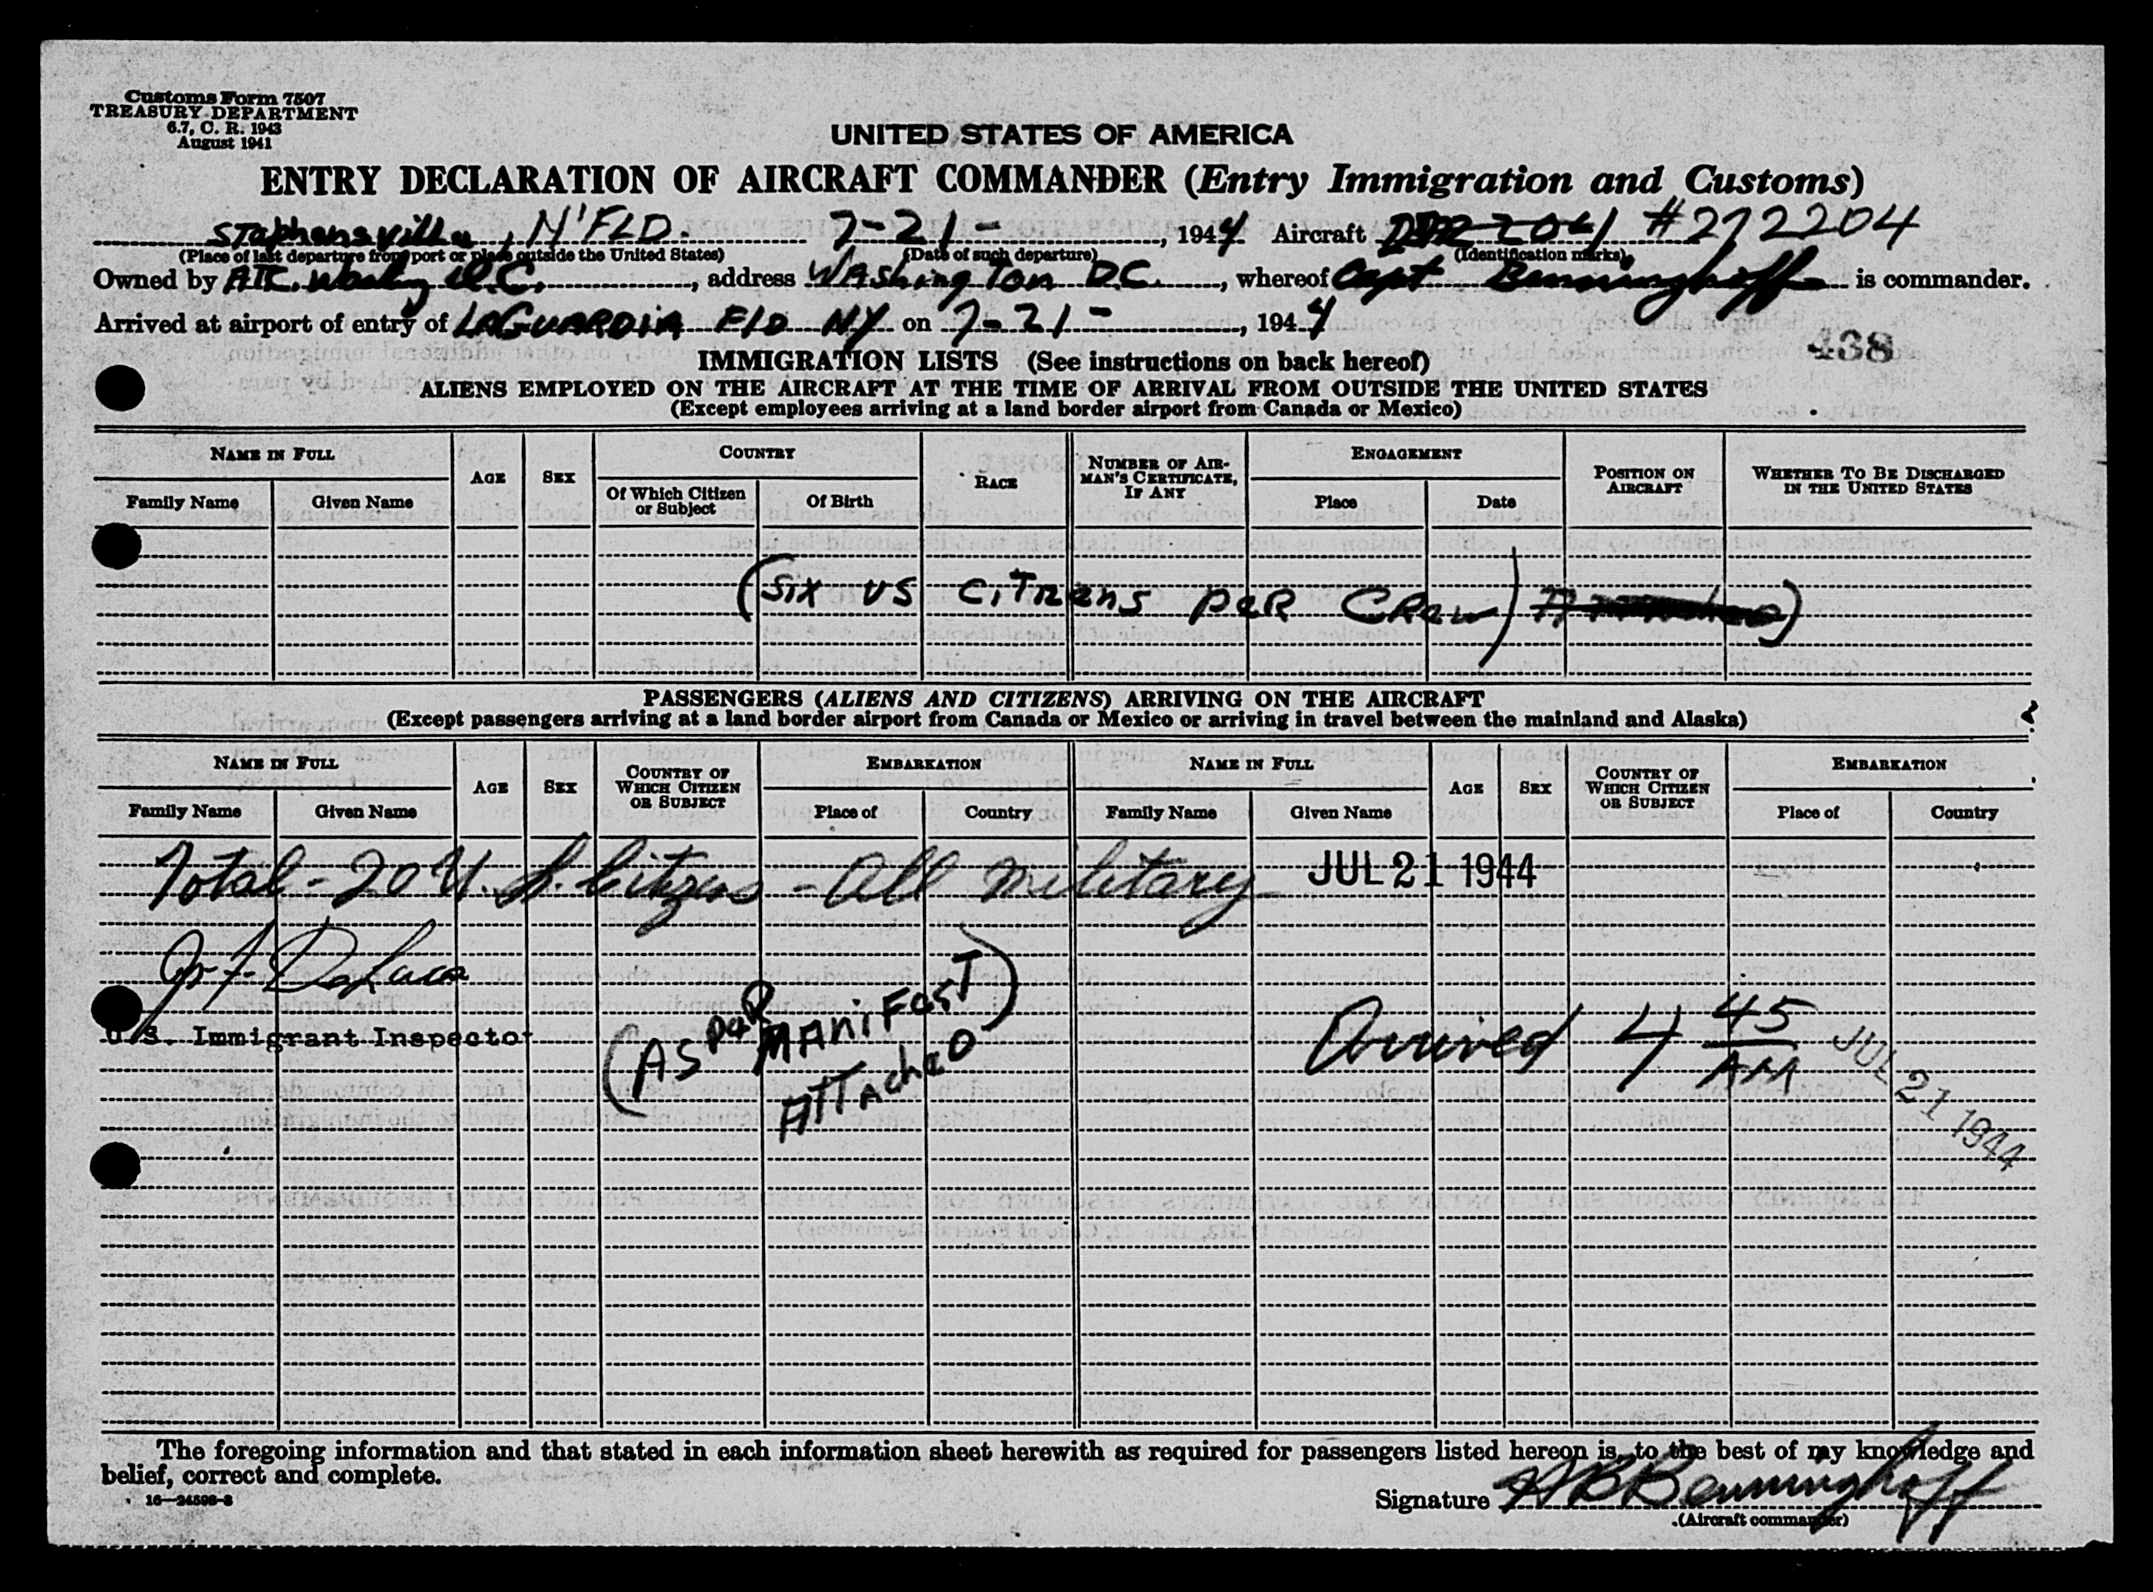 Customs Form 7507
TREASURY DEPARTMENT
6.7, C. R. 1943
August 1941
UNITED STATES OF AMERICA
ENTRY DECLARATION OF AIRCRAFT COMMANDER (Entry Immigration and Customs)
Staphensville, N'FLD. 7-21-, 1944 Aircraft #272204
(Place of last departure from port or place outside the United States) (Date of such departure) (Identification marks)
Owned by ATC. Washg D.C., address Washington D.C., whereof Capt Benninghoff is commander.
Arrived at airport of entry of LAGUARDIA FLD NY on 7-21-, 1944
438
IMMIGRATION LISTS (See instructions on back hereof)
ALIENS EMPLOYED ON THE AIRCRAFT AT THE TIME OF ARRIVAL FROM OUTSIDE THE UNITED STATES
(Except employees arriving at a land border airport from Canada or Mexico)
NAME IN FULL AGE SEX COUNTRY RACE NUMBER OF AIRMAN'S CERTIFICATE, IF ANY ENGAGEMENT POSITION ON AIRCRAFT WHETHER TO BE DISCHARGED IN THE UNITED STATES
Family Name Given Name Of Which Citizen or Subject Of Birth Place Date
(SIX US CITIZENS PER CREW)
PASSENGERS (ALIENS AND CITIZENS) ARRIVING ON THE AIRCRAFT
(Except passengers arriving at a land border airport from Canada or Mexico or arriving in travel between the mainland and Alaska)
NAME IN FULL AGE SEX COUNTRY OF WHICH CITIZEN OR SUBJECT EMBARKATION NAME IN FULL AGE SEX COUNTRY OF WHICH CITIZEN OR SUBJECT EMBARKATION
Family Name Given Name Place of Country Family Name Given Name Place of Country
Total - 20 U.S. Citizens - All military JUL 21 1944
U.S. Immigrant Inspector
(AS PER MANIFEST)
ATTACHED
Arrived 4 45 AM
JUL 21 1944
The foregoing information and that stated in each information sheet herewith as required for passengers listed hereon is, to the best of my knowledge and
belief, correct and complete.
16—24598-2
Signature H B Benninghoff
(Aircraft commander)